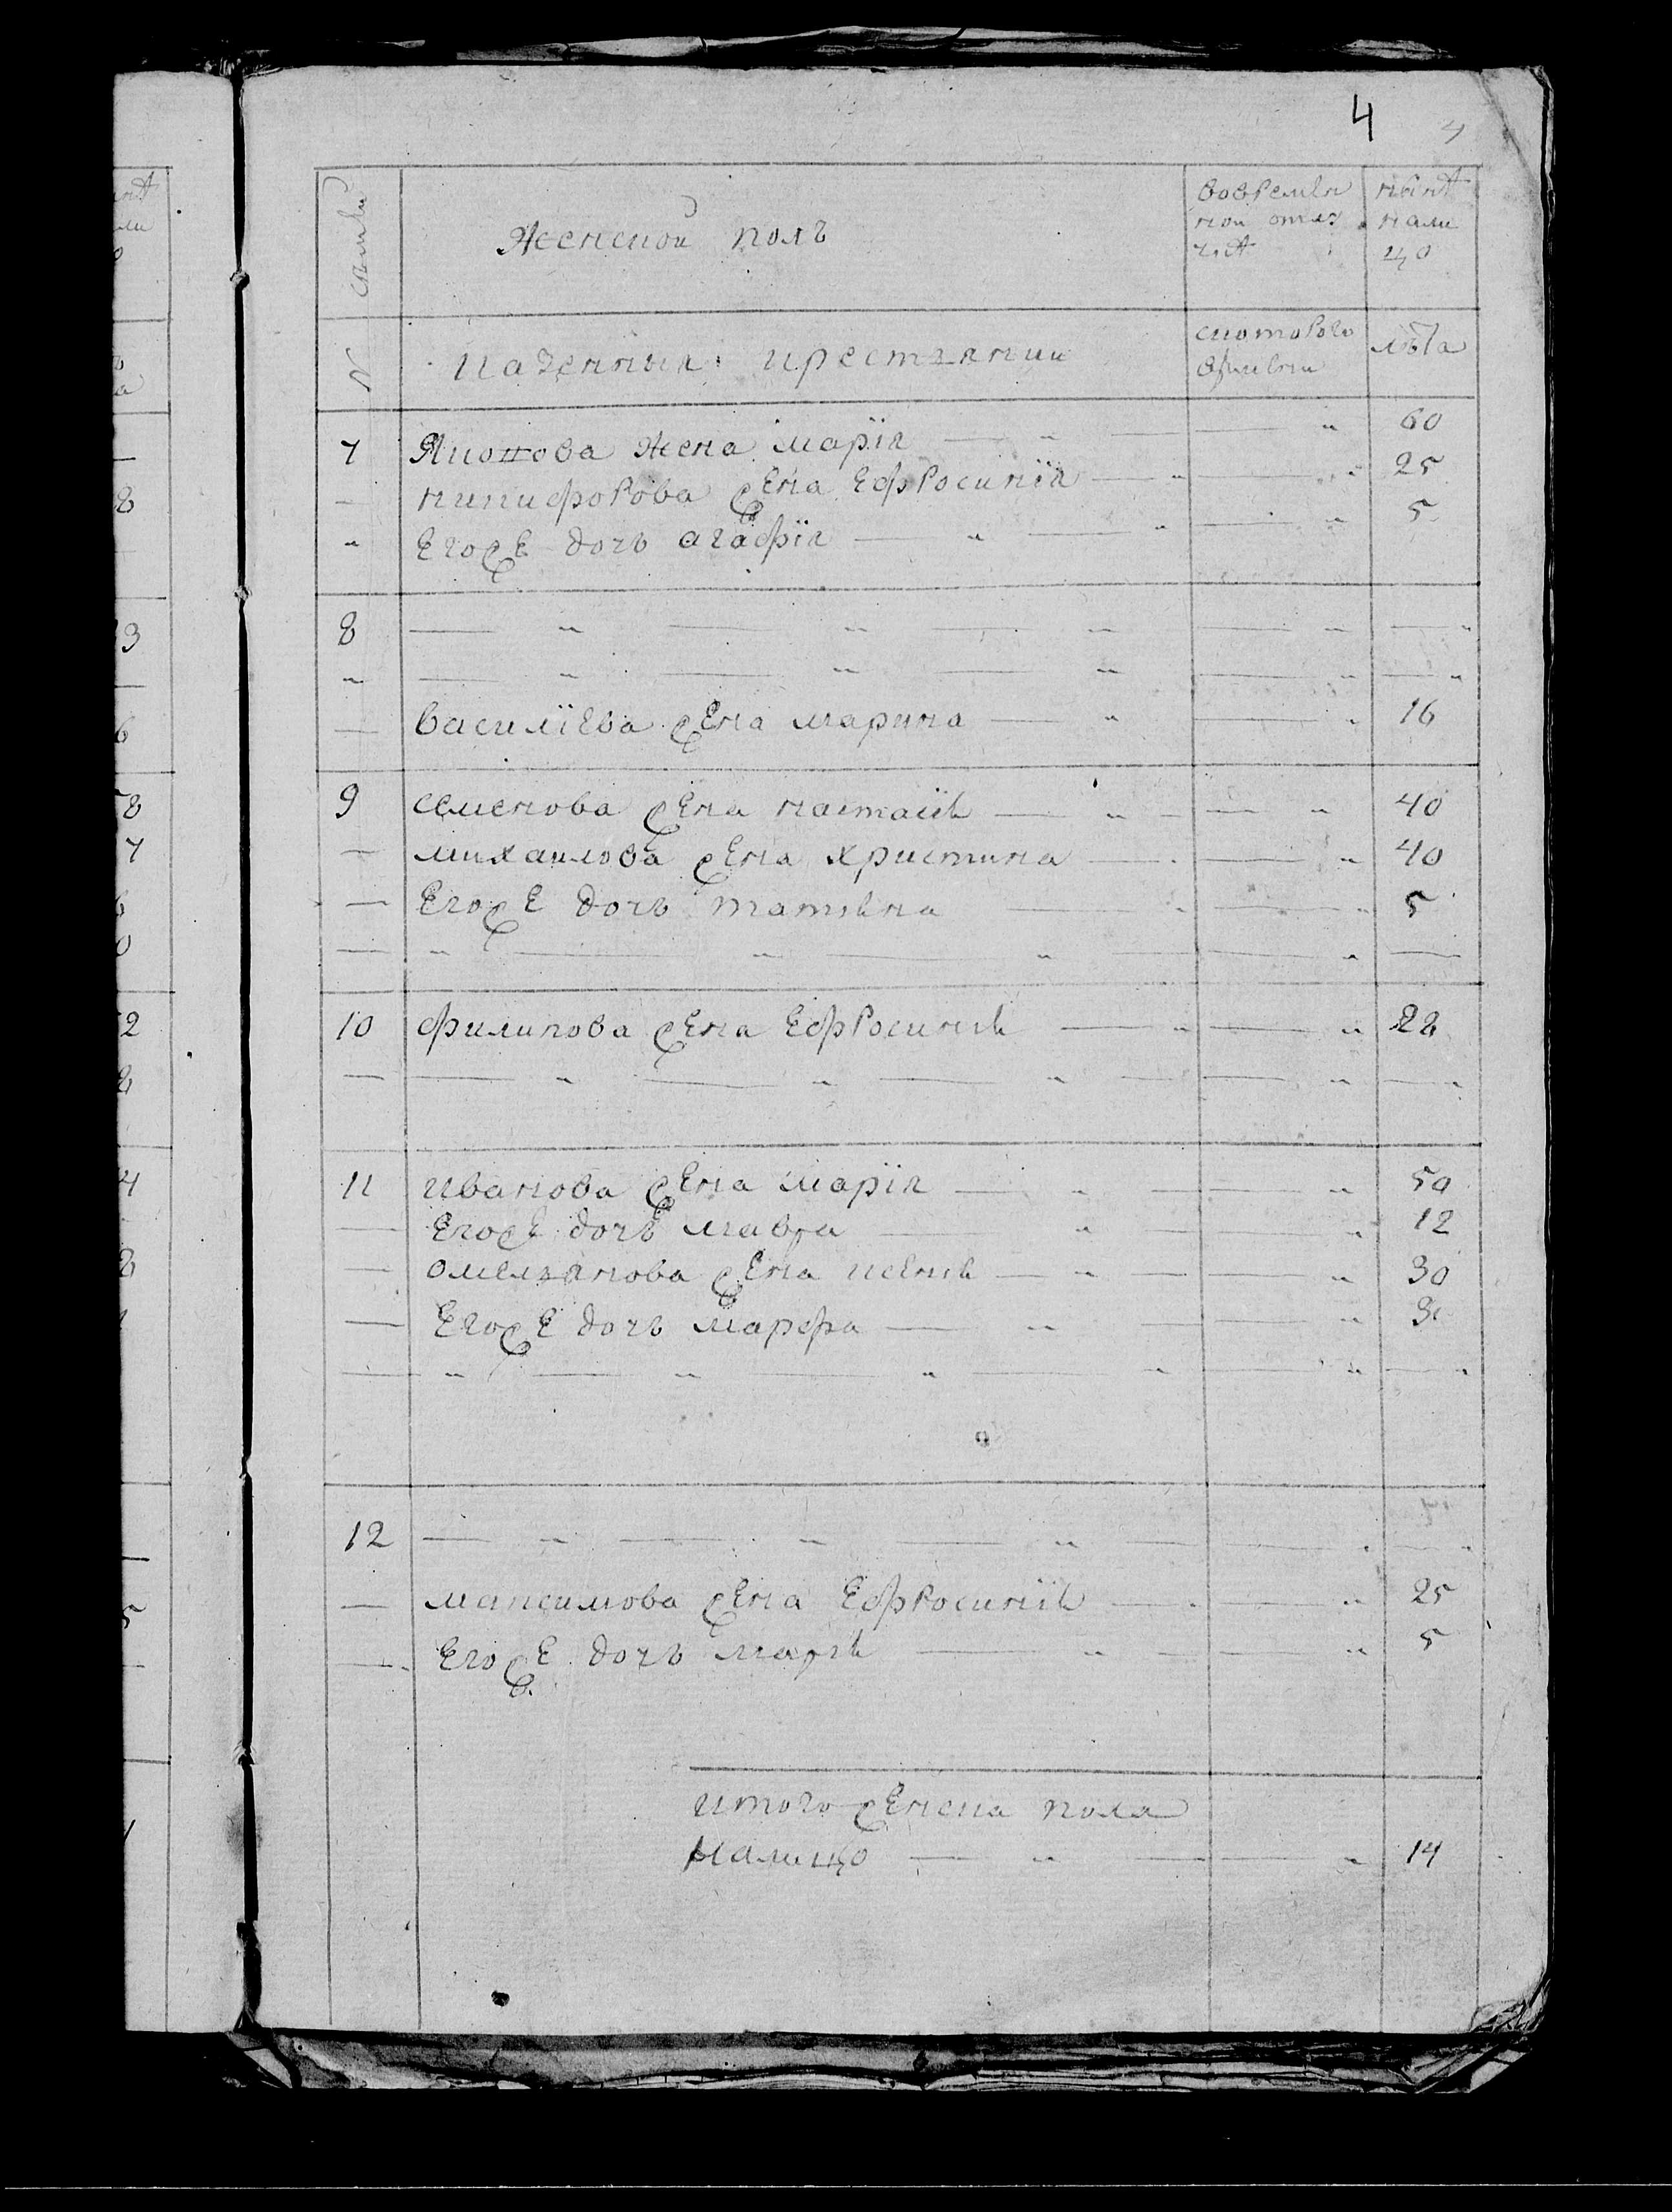 4 4
№ семьи
Женской полъ
вовремян
ной отлу
чкѣ
нынѣ
нали
цо
казенныя крестьянки
скоторого
времяни
лѣта
7 Якопова жена марія 60
никифорова жена Ефросинія 25
Егоже дочь агафія 5
8
василіева жена марина 16
9 семенова жена настасія 40
михаилова жена христина 40
Егоже дочь татияна 5
10 филипова жена Ефросиния 28
11 иванова жена марія 50
Егоже дочь мавра 12
омельянова жена ксения 30
Егоже дочь марфа 3
12
максимова жена Ефросинія 25
Егоже дочь мария 5
итого женска пола
налицо 14